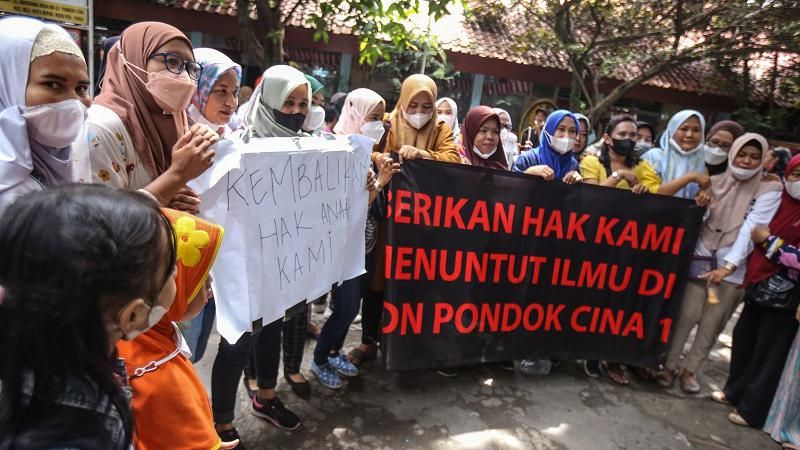 KEMBALIKAN
HAK ANAK
KAMI
BERIKAN HAK KAMI
MENUNTUT ILMU DI
DN PONDOK CINA 1